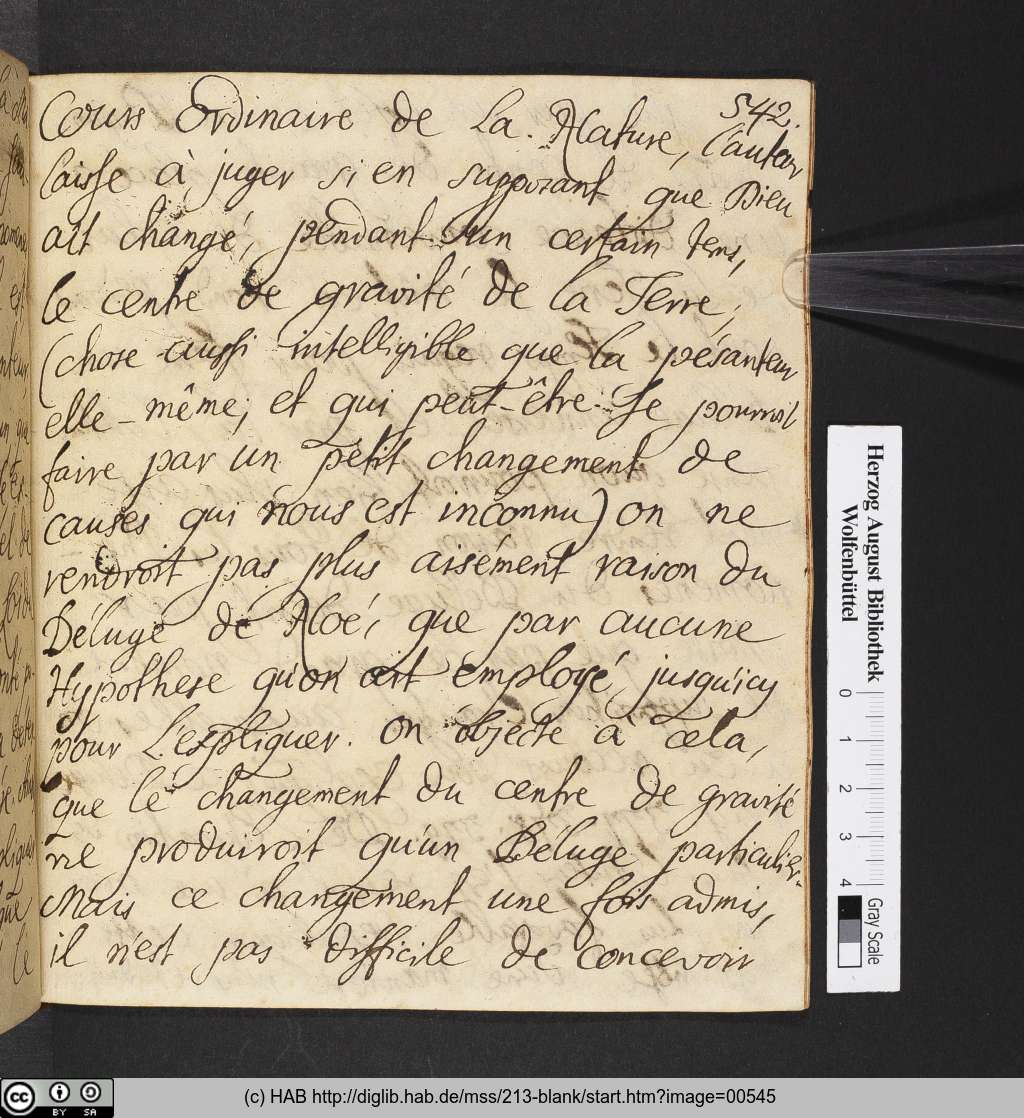 542.
Cours Ordinaire de La Nature, L'auteur
laisse à juger si en supposant que Dieu
ait changé, pendant un certain tems,
le centre de gravité de la Terre,
(chose aussi intelligible que la pésanteur
elle-même, et qui peut-être se pourroit
faire par un petit changement de
causes qui nous est inconnu) on ne
rendroit pas plus aisément raison du
Déluge de Noé, que par aucune
Hypothese qu'on ait employé jusqu'icy
pour L'expliquer. On objecte à cela,
que le changement du centre de gravité
ne produiroit qu'un Déluge particulier.
Mais ce changement une fois admis,
il n'est pas difficile de concevoir
Herzog August Bibliothek
Wolfenbüttel
0 1 2 3 4
Gray Scale
cc BY SA
(c) HAB http://diglib.hab.de/mss/213-blank/start.htm?image=00545